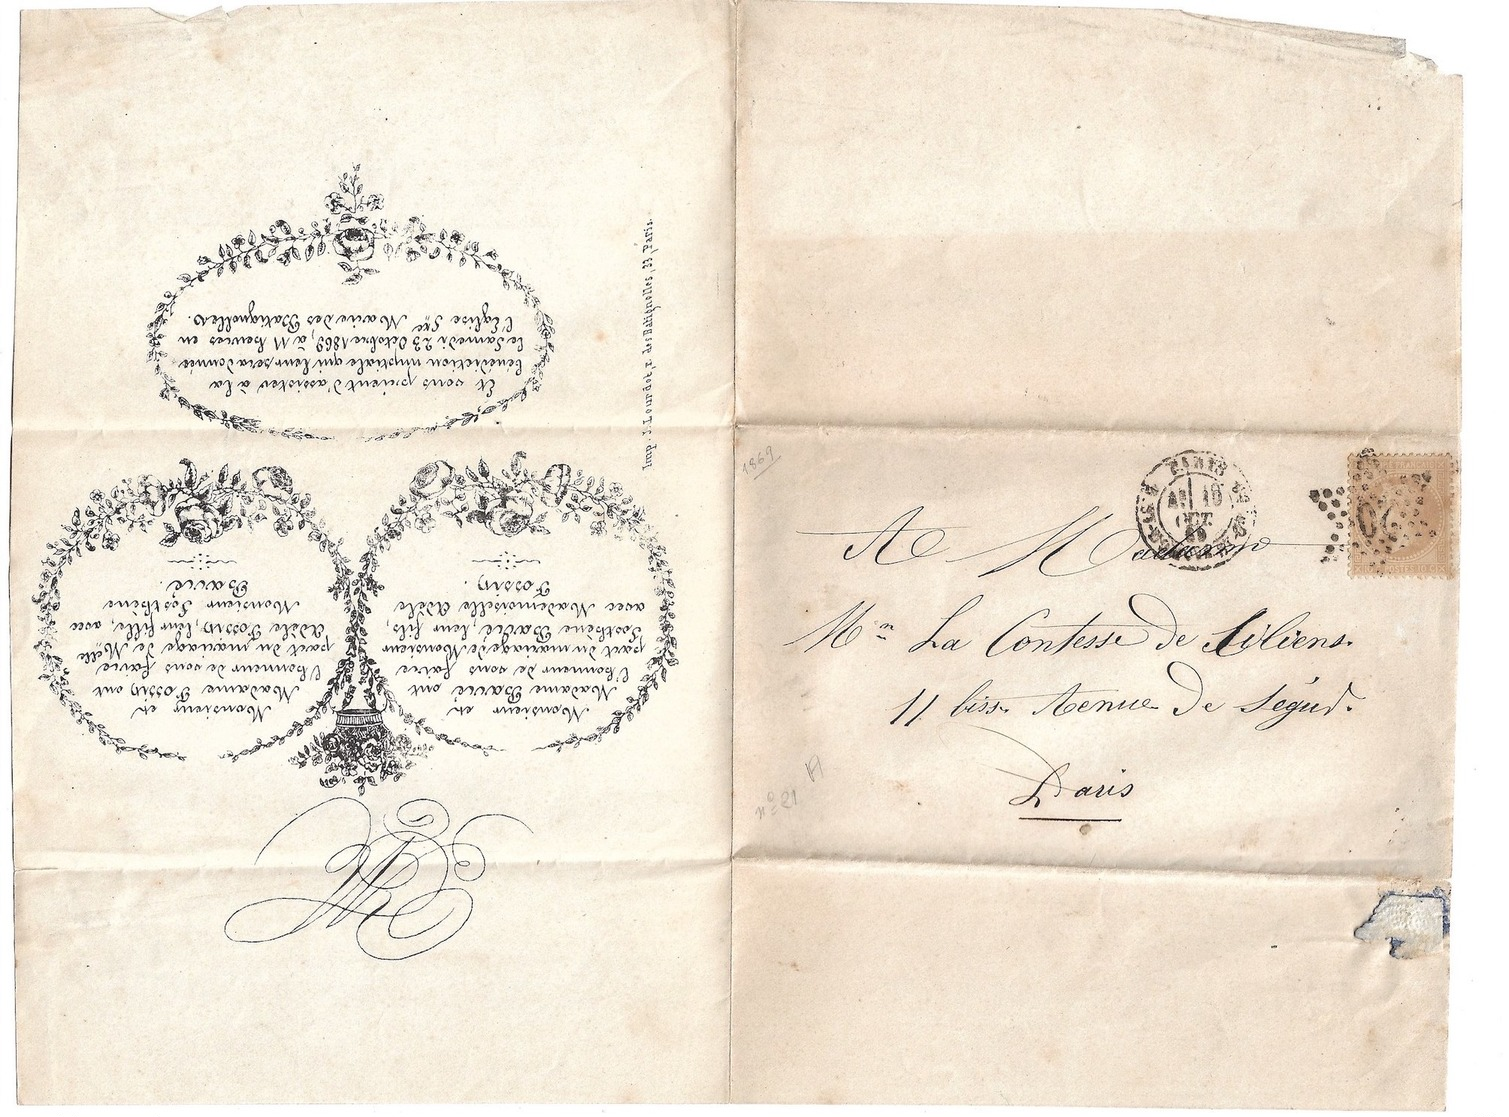 Monsieur et
Madame Barié ont
l'honneur de vous faire
part du mariage de Monsieur
Sosthène Barié, leur fils,
avec Mademoiselle Adèle
Fossin.
Monsieur et
Madame Fossin ont
l'honneur de vous faire
part du mariage de Mlle
Adèle Fossin, leur fille, avec
Monsieur Sosthène
Barié.
Et vous prient d'assister à la
bénédiction nuptiale qui leur sera donnée
le Samedi 23 Octobre 1869, à 11 heures en
l'Eglise Ste Marie des Batignolles.
Imp. J. Lourdot, r. des Batignolles, 33, Paris.
1869
PARIS
19
OCT.
69
20
POSTES 10 C
A Madame
Mn La Contesse de
11 bis. Avenue De Ségur.
Paris
nº 21